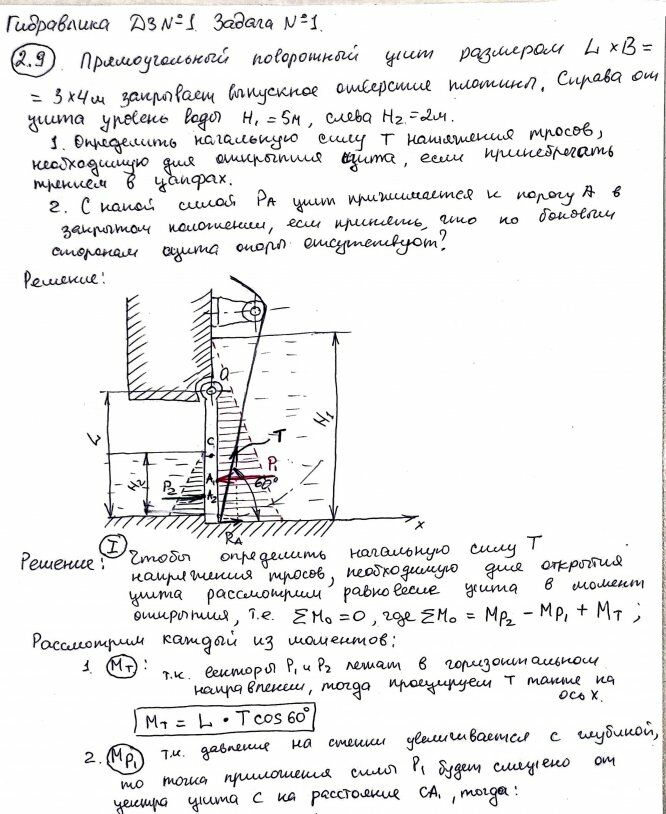 Гидравлика ДЗ №1 Задача №1.
2.9 Прямоугольный поворотный щит размером L×B =
= 3×4м закрывает выпускное отверстие плотины. Справа от
щита уровень воды H₁ = 5м, слева H₂ = 2м.
1. Определить начальную силу T натяжения тросов,
необходимую для открытия щита, если пренебрегать
трением в цапфах.
2. С какой силой P_A щит прижимается к порогу A в
закрытом положении, если принять, что по боковым
сторонам щита опоры отсутствуют?
Решение:
O
L
H₂
H₁
C
T
P₁
A₁
P₂
A₂
60°
R_A
x
Решение: I Чтобы определить начальную силу T
напряжения тросов, необходимую для открытия
щита рассмотрим равновесие щита в момент
открытия, т.е. ΣM₀ = 0, где ΣM₀ = M_P₂ − M_P₁ + M_T ;
Рассмотрим каждый из моментов:
1. M_T : т.к. векторы P₁ и P₂ лежат в горизонтальном
направлении, тогда проецируем T также на
ось X.
M_T = L · T cos 60°
2. M_P₁ т.к. давление на стенки увеличивается с глубиной,
то точка приложения силы P₁ будет смещено от
центра щита C на расстояние CA₁, тогда: